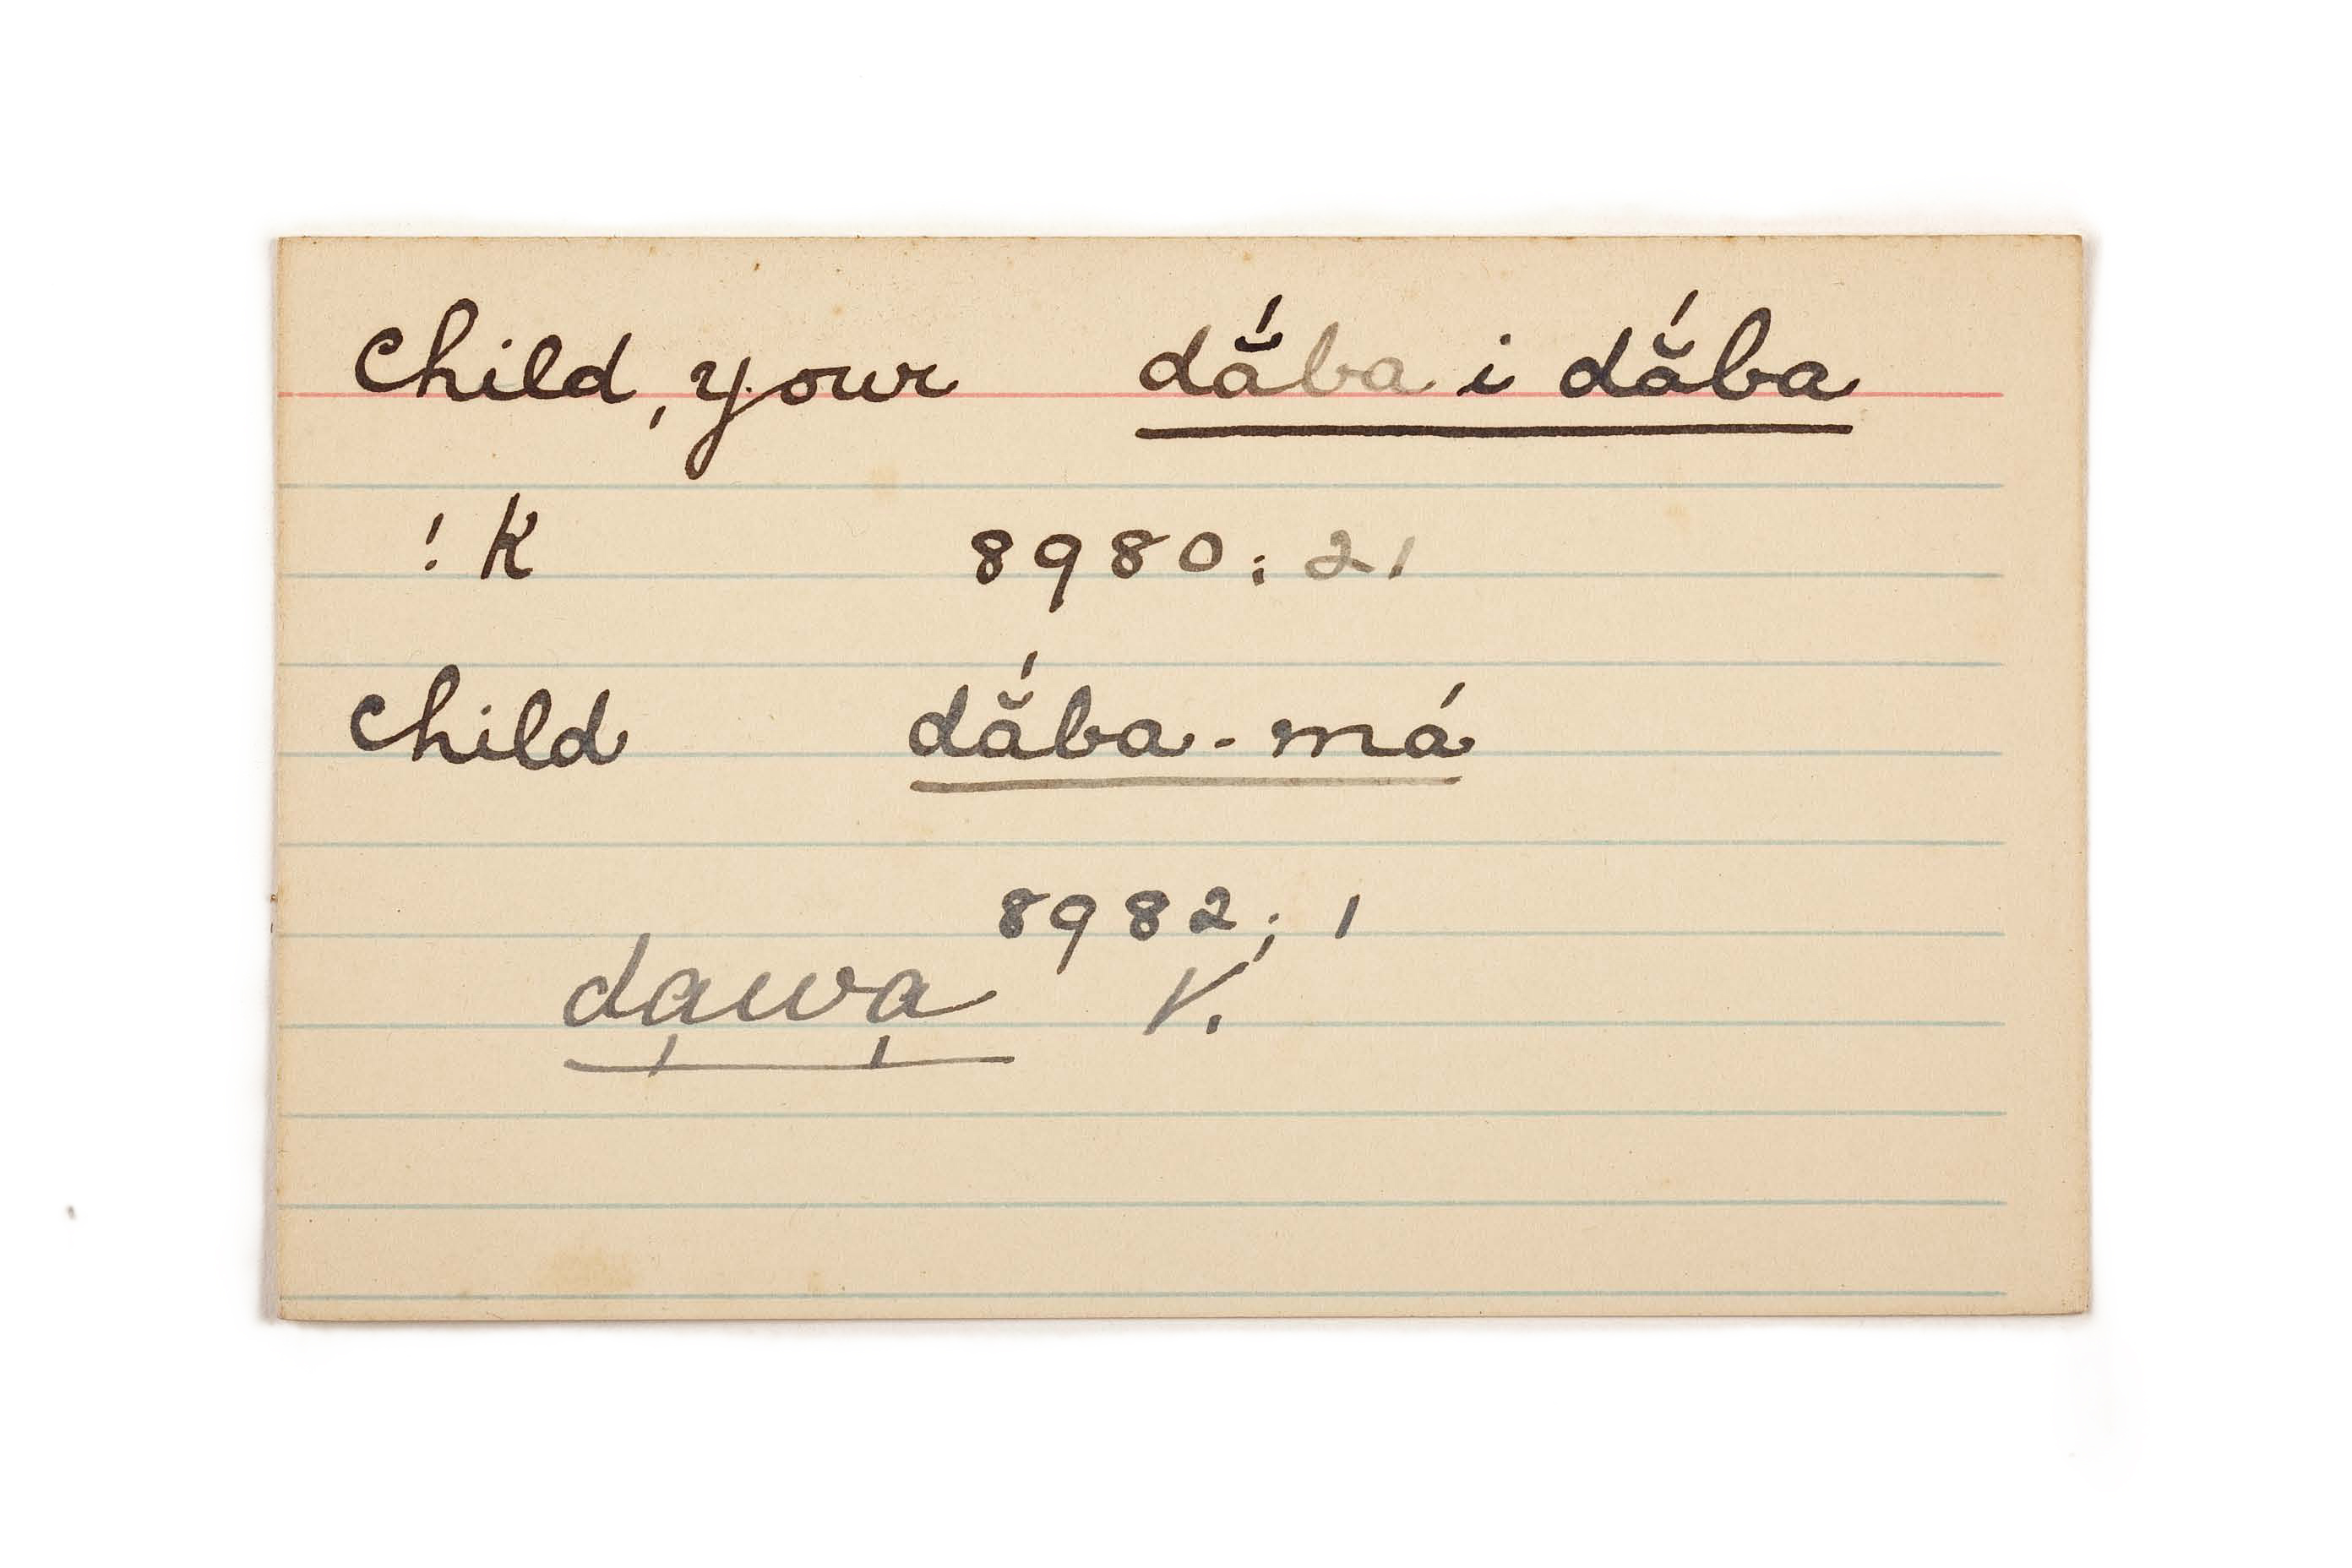 Child, your dắba i dắba
! K 8980; 21
Child dắba - má
8982; 1
dạwạ V.